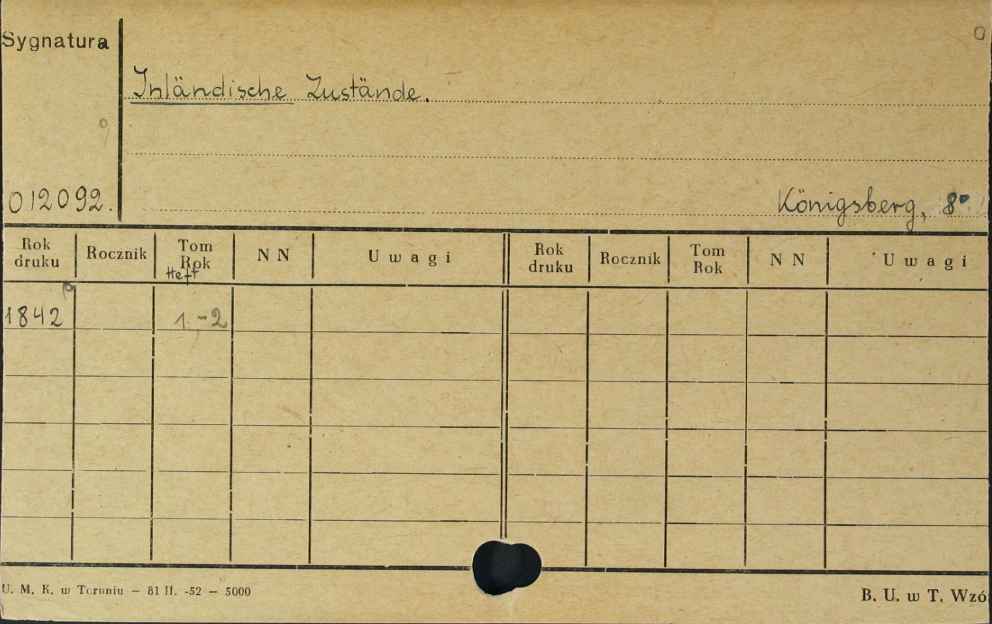 Sygnatura
Inländische Zustände.
012092.
Königsberg, 8°
Rok druku Rocznik Tom Rok Heft N N Uwagi Rok druku Rocznik Tom Rok N N Uwagi
1842 1.-2
U. M. K. w Toruniu – 81 II. -52 – 5000
B. U. w T. Wzó